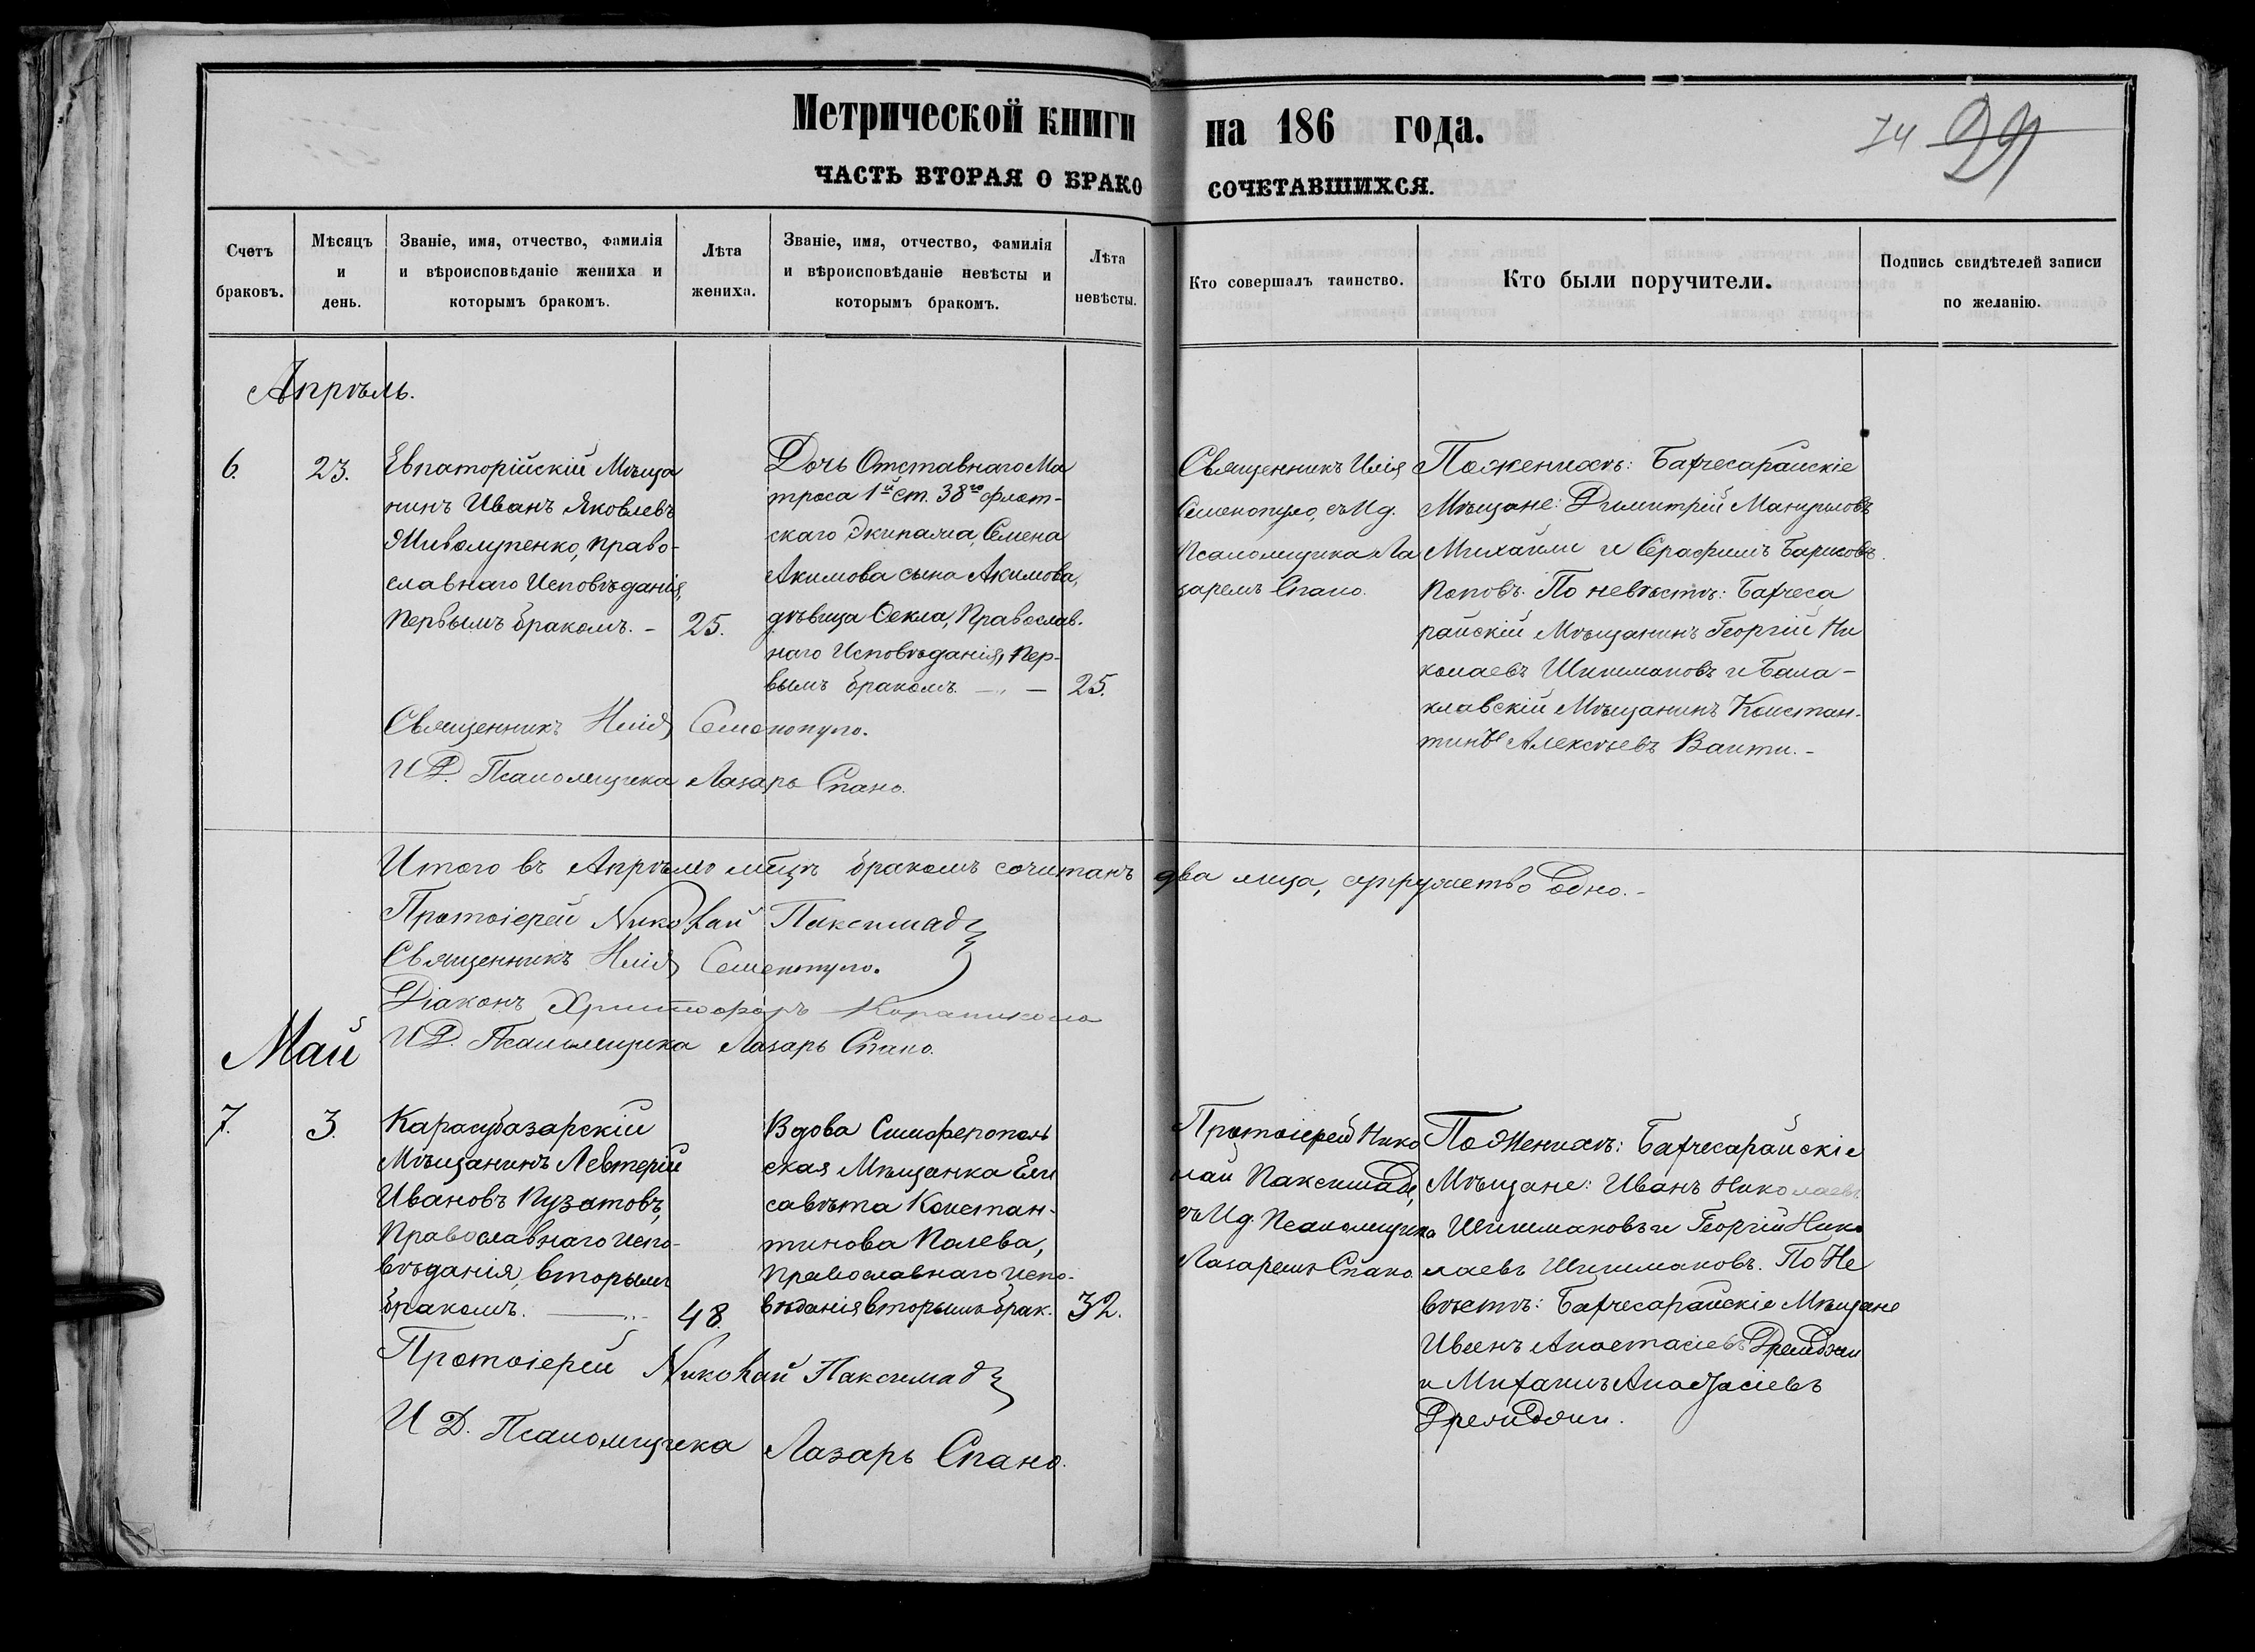 Метрической книги на 186 года.
74 99
ЧАСТЬ ВТОРАЯ О БРАКОСОЧЕТАВШИХСЯ.
Счетъ
браковъ.
Мѣсяцъ
и
день.
Званіе, имя, отчество, фамилія
и вѣроисповѣданіе жениха и
которымъ бракомъ.
Лѣта
жениха.
Званіе, имя, отчество, фамилія
и вѣроисповѣданіе невѣсты и
которымъ бракомъ.
Лѣта
невѣсты.
Кто совершалъ таинство.
Кто были поручители.
Подпись свидѣтелей записи
по желанію.
Апрѣль.
6.
23.
Евпаторійскій Мѣща
нинъ Иванъ Яковлевъ
право-
славнаго Исповѣданія,
первымъ бракомъ. –
25.
Дочь Отставнаго Ма
троса 1й ст. 38го флот-
скаго Экипажа, Семена
Акимова сына Акимова,
дѣвица Ѳекла, Православ.
наго Исповѣданія, пер-
вымъ бракомъ. – " –
25.
Священникъ Илія
Семенопуло, съ Ид.
Псаломщика Ла
заремъ Спано.
По женихѣ: Бахчесарайскіе
Мѣщане: Димитрій
Михаили и Серафимъ Барисовъ
Поповъ. По невѣстѣ: Бахчеса
райскій Мѣщанинъ Георгій Ни
колаевъ Шишмановъ и Бала-
клавскій Мѣщанинъ Констан-
тинъ Алексѣевъ –
Священникъ Илія Семенопуло.
ИД. Псаломщика Лазарь Спано.
Итого въ Апрѣлѣ мѣцѣ бракомъ сочитанъ два лица, супружество одно. –
Протоіерей Николай Паксимади
Священникъ Илія Семенопуло.
Діаконъ Христофоръ
ИД. Псаломщика Лазарь Спано.
Май
7.
3.
Карасубазарскій
Мѣщанинъ Левтерій
Ивановъ Пузатовъ,
Православнаго испо-
вѣданія, вторымъ
бракомъ. —
48.
Вдова Симферополь
ская Мѣщанка Ели
савѣта Констан-
тинова Полева,
православнаго испо-
вѣданія вторымъ брак.
32.
Протоіерей Нико
лай Паксимади,
съ Ид. Псаломщика
Лазаремъ Спано.
По Женихѣ: Бахчесарайскіе
Мѣщане: Иванъ Николаевъ
Шишмановъ и Георгій Нико
лаевъ Шишмановъ. По Не
вѣстѣ: Бахчесарайскіе Мѣщане
Иванъ Анастасіевъ
и Михаилъ Анастасіевъ
Протоіерей Николай Паксимади
И Д. Псаломщика Лазарь Спано.